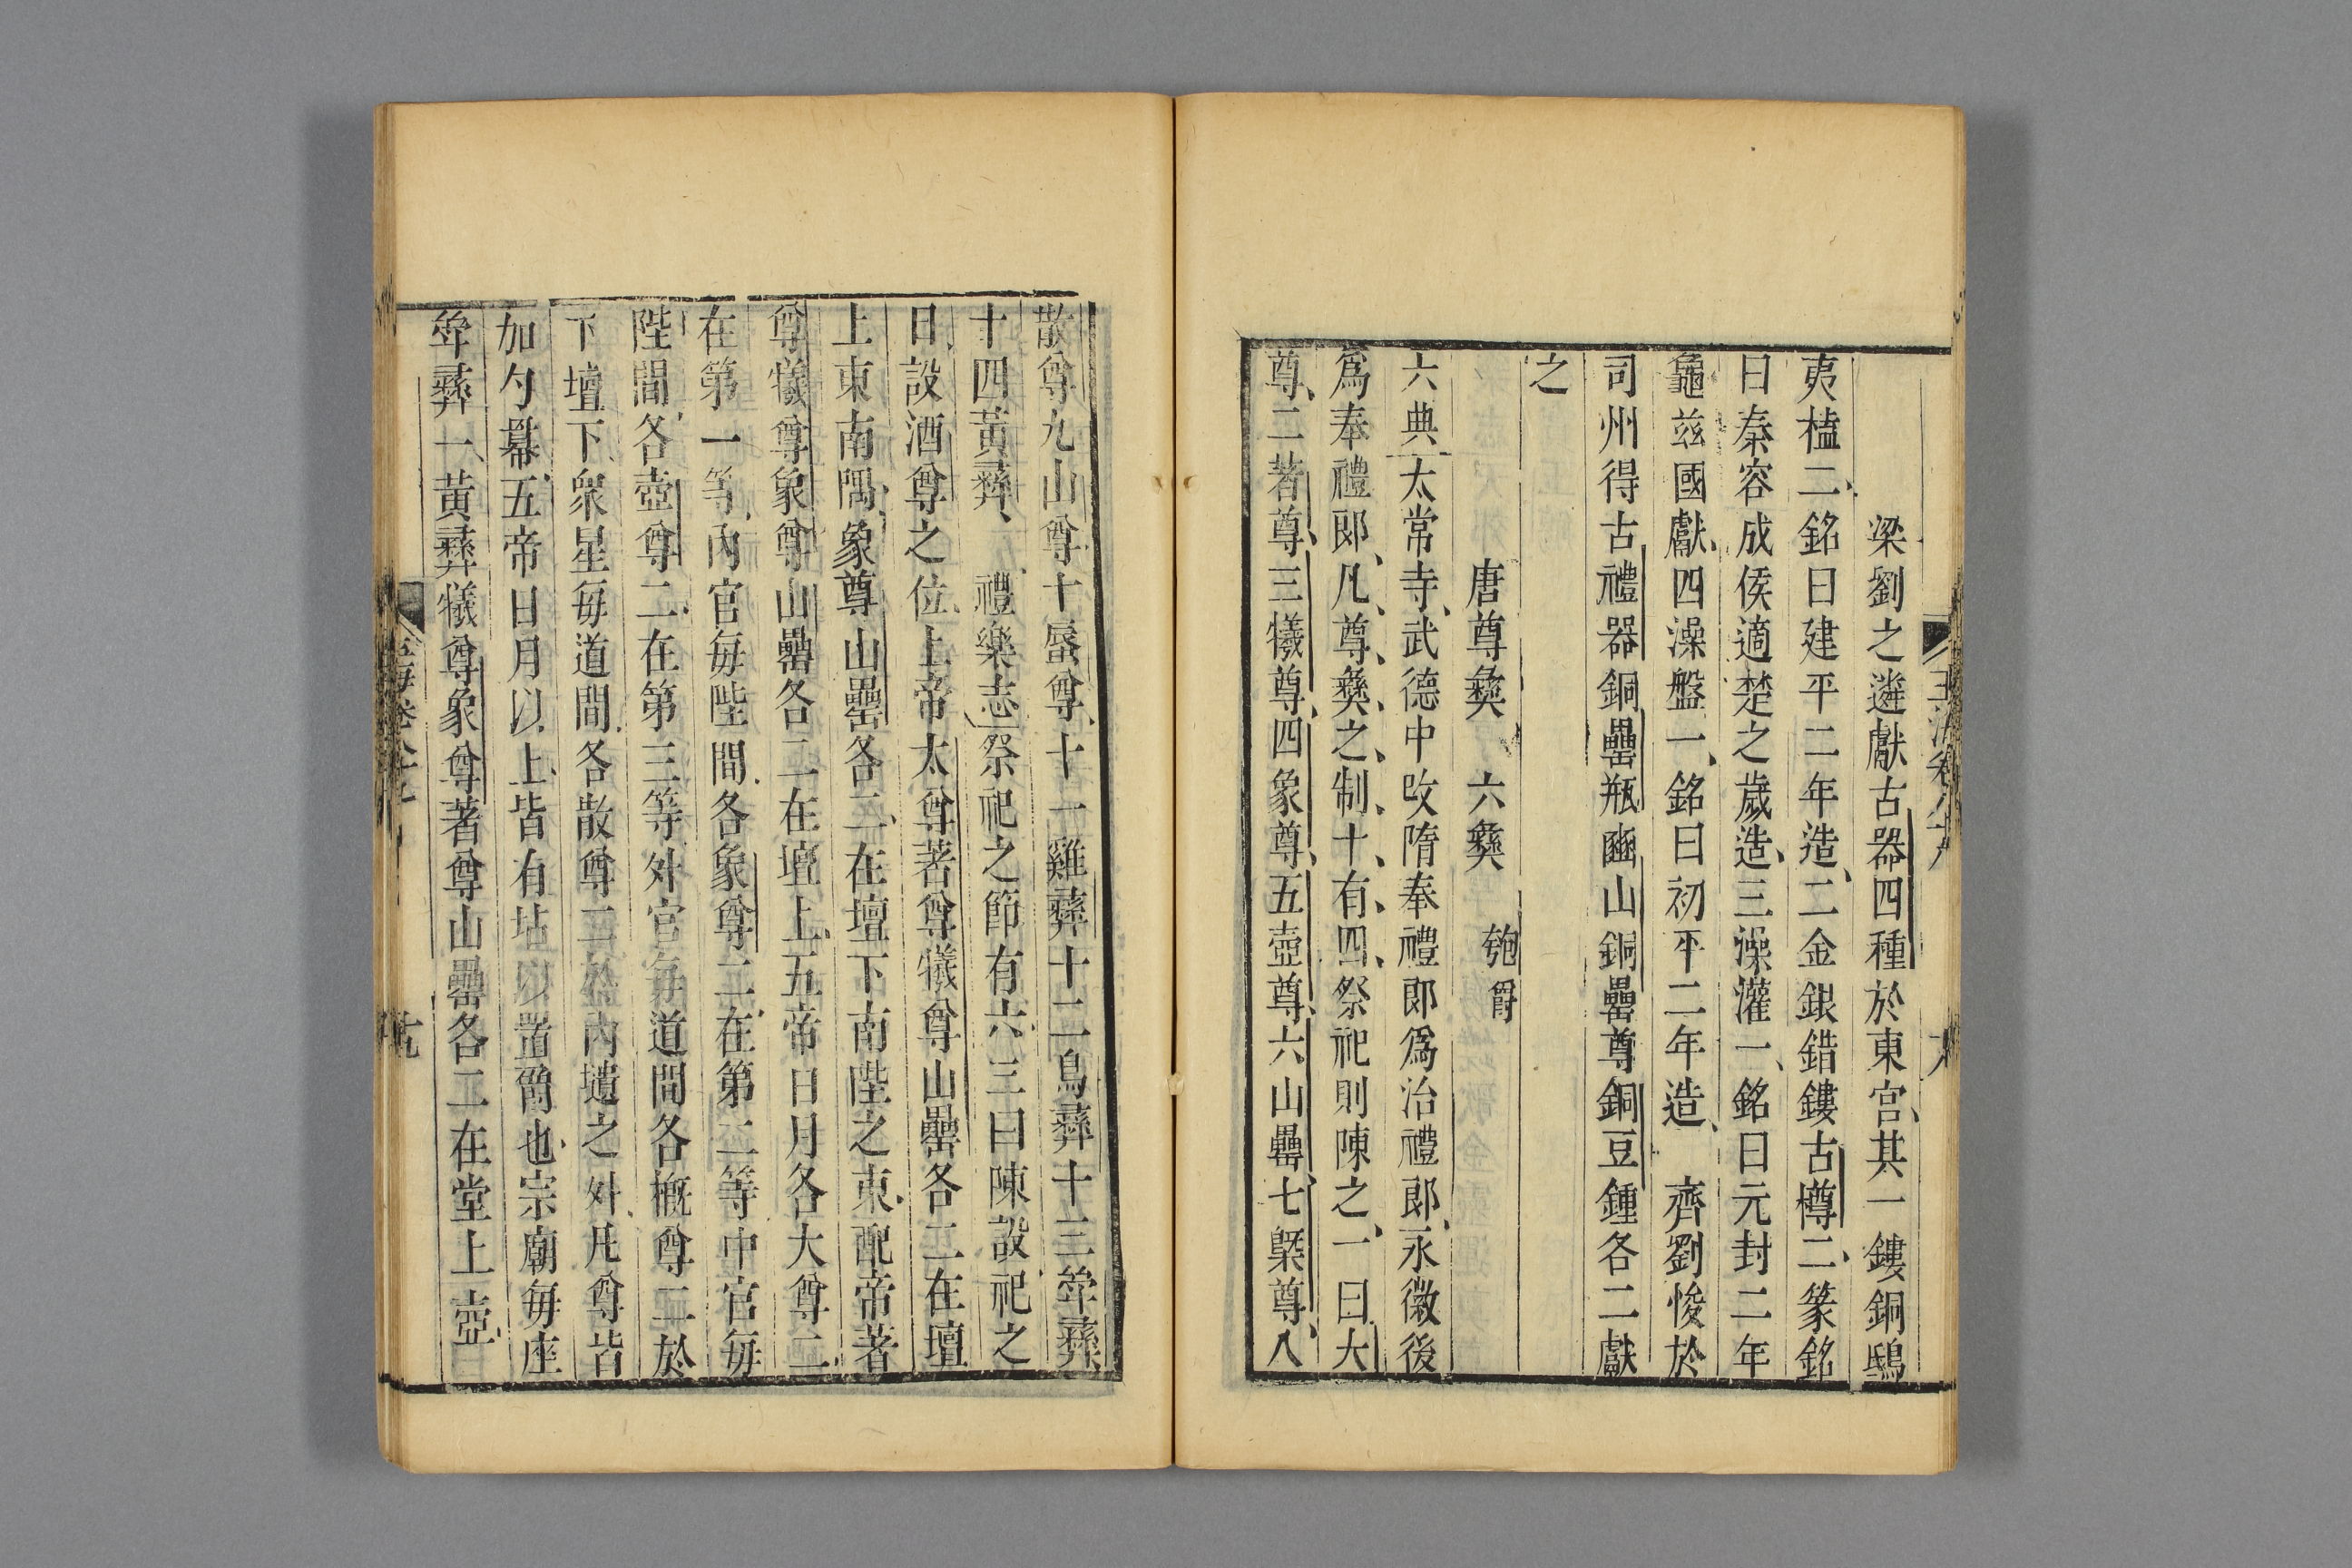 梁劉之遴獻古器四種於東宮其一鏤銅鴟
夷榼二銘曰建平二年造二金銀錯鏤古樽二篆銘
曰秦容成侯適楚之歲造三澡灌一銘曰元封二年
龜兹國獻四澡盤一銘曰初平二年造　齊劉悛於
司州得古禮器銅罍瓶豳山銅罍尊銅豆鍾各二獻
之
唐尊彝　六彝　匏爵
六典太常寺武德中改隋奉禮郎爲治禮郎永徽後
爲奉禮郎凡尊彝之制十有四祭祀則陳之一曰大
尊二著尊三犧尊四象尊五壺尊六山罍七槩尊八
散尊九山尊十蜃尊十一雞彝十二鳥彝十三斝彝
十四黃彝　禮樂志祭祀之節有六三曰陳設祀之
日設酒尊之位上帝太尊著尊犧尊山罍各二在壇
上東南隅象尊山罍各二在壇下南陛之東配帝著
尊犧尊象尊山罍各二在壇上五帝日月各大尊二
在第一等內官每陛間各象尊二在第二等中官每
陛間各壺尊二在第三等外官每道間各概尊二於
下壇下衆星每道間各散尊二於內壝之外凡尊皆
加勺冪五帝日月以上皆有坫以置爵也宗廟每座
斝彝一黃彝犧尊象尊著尊山罍各二在堂上壺